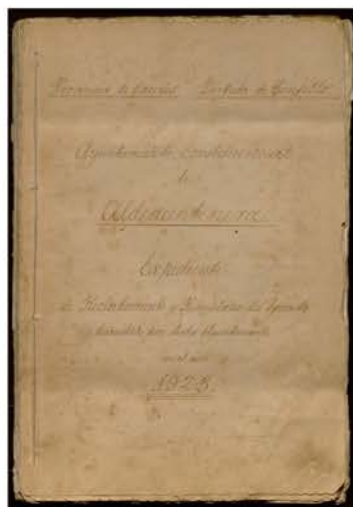 Provincia de Cáceres Partido de
Ayuntamiento constitucional
de
Aldeacentenera
Expediente
de Reclutamiento y Reemplazo del Ejército
por dicho Ayuntamiento
en el año
1923.